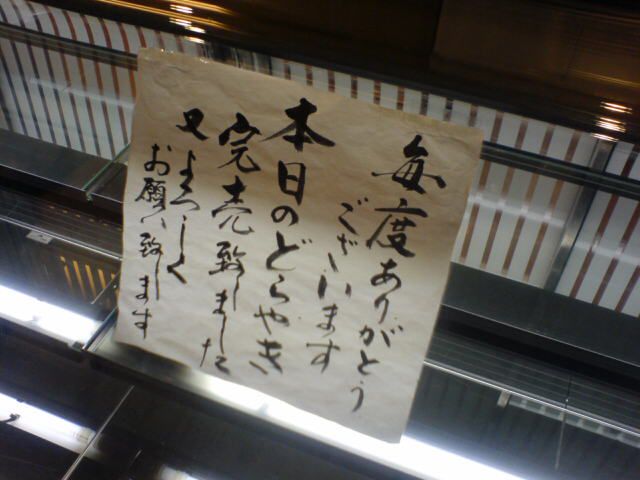 毎度ありがとう
ございます
本日のどらやき
完売致しました
又よろしく
お願い致します